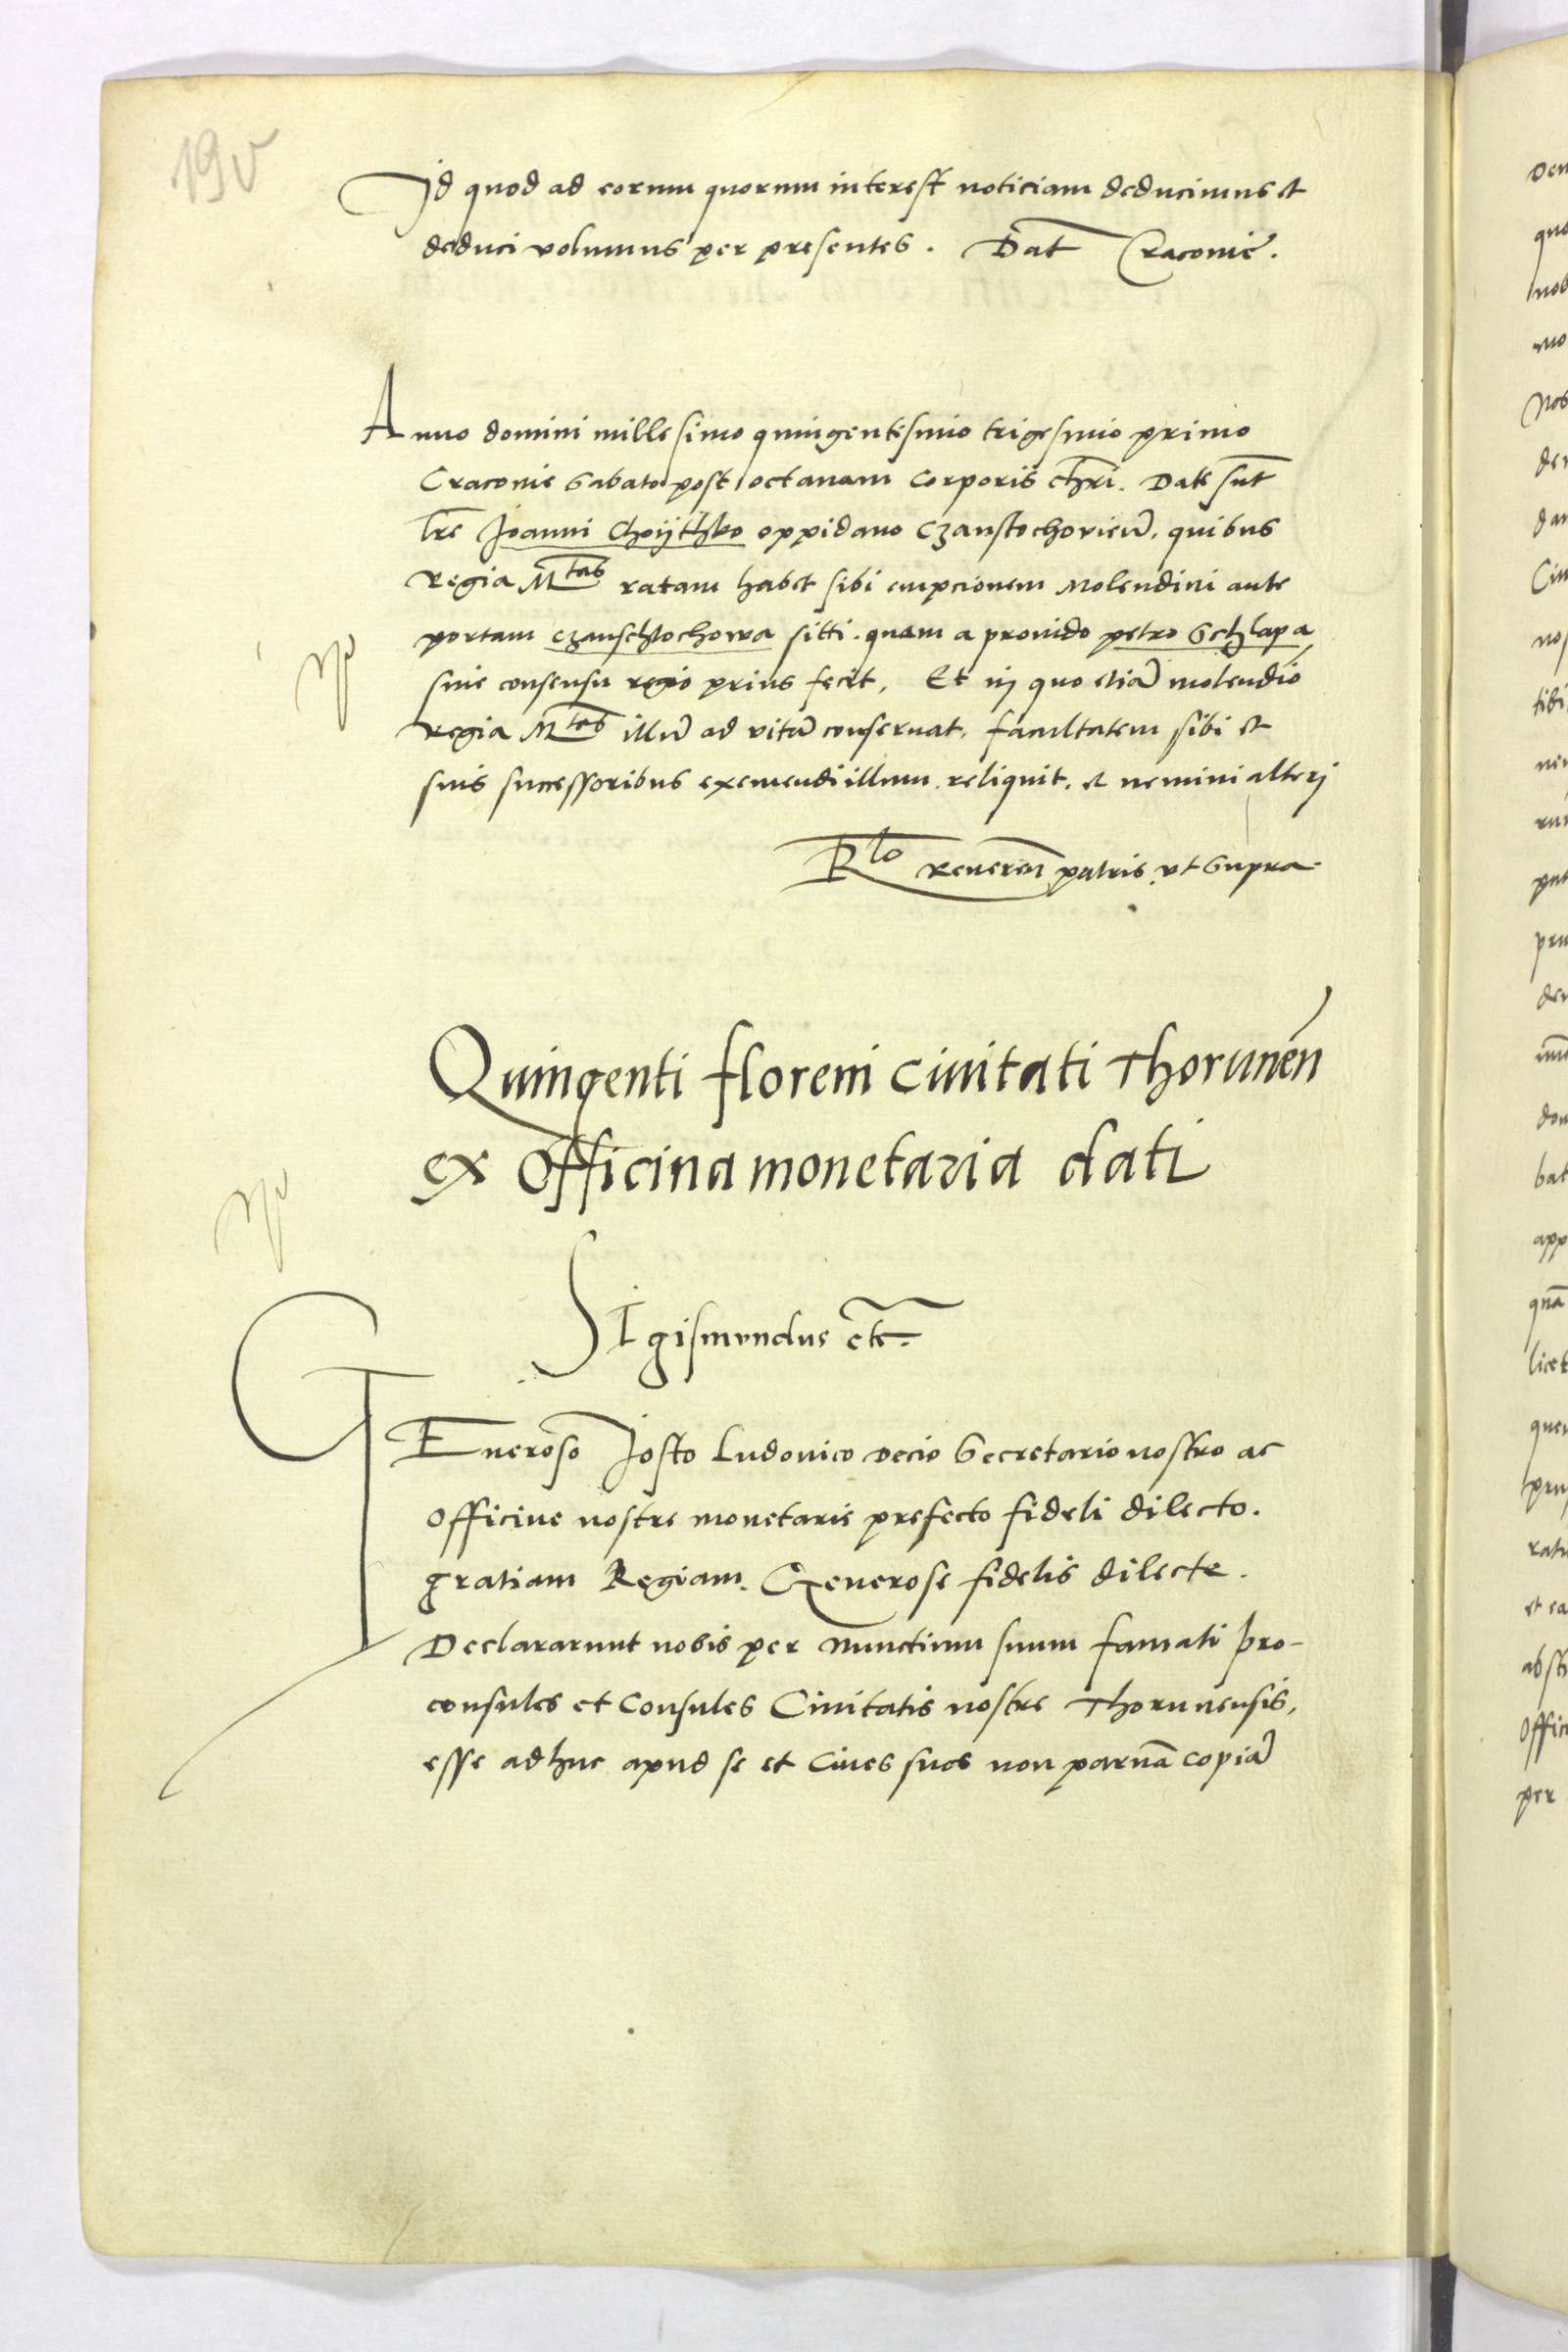 19v
Id quod ad eorum quorum interest noticiam deducimus et
deduci volumus per presentes. Dat Cracovie.
Anno domini millesimo quingentesimo trigesimo primo
Cracovie Sabato post octavam Corporis chri. Date sut
lre Joanni Choijthko oppidano Czanstochovien, quibus
Regia Mtas ratam habet sibi empcionem Molendini ante
portam Czanschtochowa sitti. quam a provido petro Schlapa
sine consensu regio prius fecit, Et in quo etia molendio
regia Mtas illu ad vita conservat, facultatem sibi et
suis successoribus exemendi illum reliquit, et nemini alteri
Rlo Reveren patris ut Supra
Quingenti floreni Civitati Thorunen
ex Officina monetaria dati
SIgismundus etc.
GEneroso Josto Ludovico Decio Secretario nostro ac
Officine nostre monetarie prefecto fideli dilecto.
gratiam Regiam. Generose fidelis dilecte.
Declararunt nobis per Nunctium suum famati pro-
consules et Consules Civitatis nostre Thorunensis,
esse adhuc apud se et Cives suos non parva copia